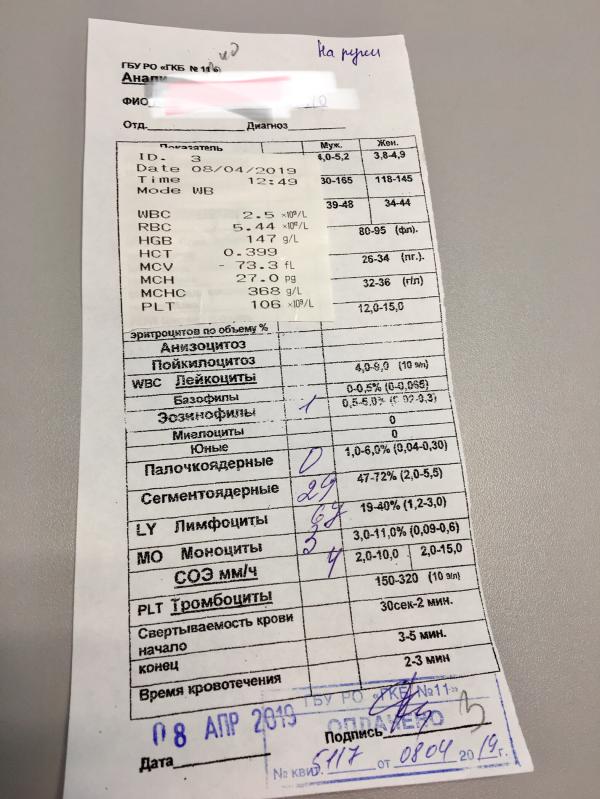 На руки
ГБУ РО «ГКБ № 11»
Анали
ФИО
Отд. Диагноз
Показатель Муж. Жен.
ID. 3 4,0-5,2 3,8-4,9
Date 08/04/2019
Time 12:49 30-165 118-145
Mode WB
39-48 34-44
WBC 2.5 ×10⁹/L
RBC 5.44 ×10¹²/L 80-95 (фл).
HGB 147 g/L
HCT 0.399 26-34 (пг.).
MCV - 73.3 fL
MCH 27.0 pg 32-36 (г/л)
MCHC 368 g/L
PLT 106 ×10⁹/L 12,0-15,0
эритроцитов по объему %
Анизоцитоз
Пойкилоцитоз
WBC Лейкоциты 4,0-9,0 (10 9/л)
Базофилы 0-0,5% (0-0,065)
Эозинофилы 1 0,5-5,0% (0,02-0,3)
Миелоциты 0
Юные 0
Палочкоядерные 0 1,0-6,0% (0,04-0,30)
Сегментоядерные 29 47-72% (2,0-5,5)
LY Лимфоциты 67 19-40% (1,2-3,0)
MO Моноциты 3 3,0-11,0% (0,09-0,6)
СОЭ мм/ч 4 2,0-10,0 2,0-15,0
PLT Тромбоциты 150-320 (10 9/л)
Свертываемость крови
начало 30сек-2 мин.
конец 3-5 мин.
Время кровотечения 2-3 мин
ГБУ РО «ГКБ №11»
08 АПР 2019 ОПЛАЧЕНО
Дата Подпись
№ квит. 5117 от 0804 2019г.